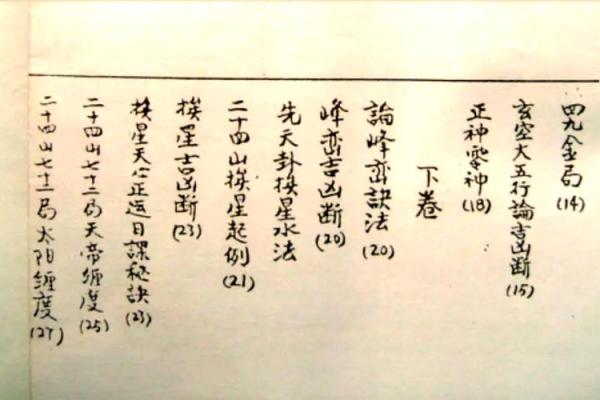 四九金局(14)
玄空大五行論吉凶断(15)
正神零神(18)
下卷
論峰巒訣法(20)
峰巒吉凶断(20)
先天卦挨星水法
二十四山挨星起例(21)
挨星吉凶断(23)
挨星天心正运日課秘訣(23)
二十四山七十二局天帝纏度(25)
二十四山七十二局太阳纏度(27)